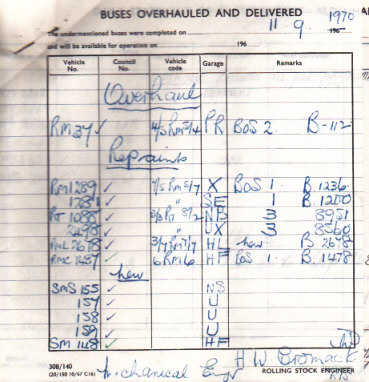 BUSES OVERHAULED AND DELIVERED
The undermentioned buses were completed on 11 9 1970 196
and will be available for operation on 196
Vehicle No. Council No. Vehicle code Garage Remarks
Overhaul
RM 37 ✓ 4/5 RM 5/4 PR BOS 2 B-112
Repaints
RM 1289 ✓ 7/5 RM 5/7 X BOS 1 B.1236
1281 ✓ " SE 1 B 1200
RT 1088 ✓ 8/2 NB 3 8951
2498 ✓ " UX 3 8560
RML 2678 ✓ 3/7 RM 7/7 HL new B 2678
RMC 1487 ✓ 6 RM 6 HF BOS 1 B. 1478
new
SMS 155 ✓ NS
157 ✓ U
158 ✓ U
159 ✓ U
SM 148 ✓ HF
Mechanical Engr H W Cromack
ROLLING STOCK ENGINEER
308/140
(28/150 10/67 C16)